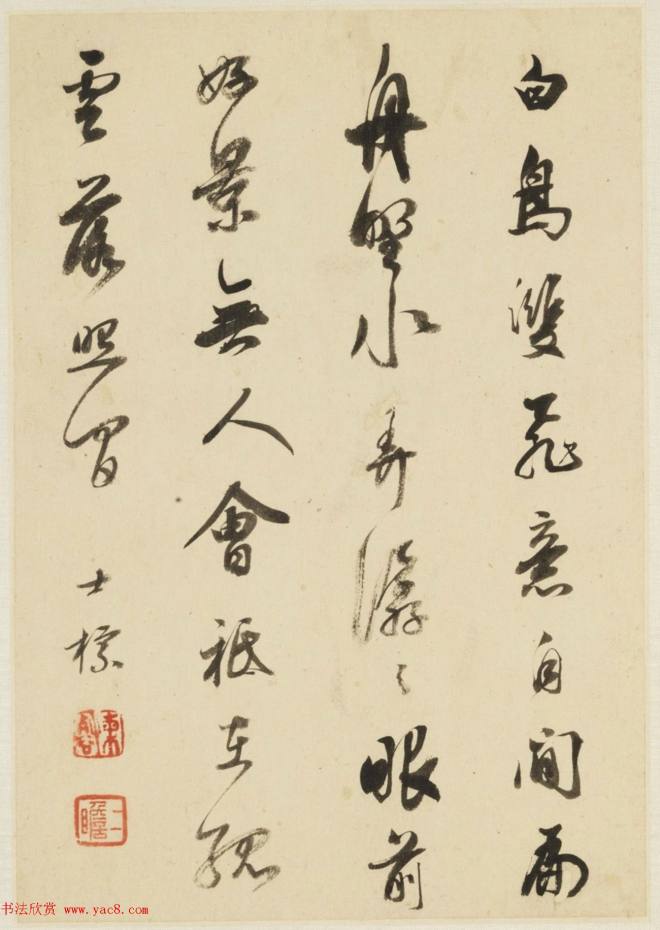 白鳥雙飛意自閒扁
舟野水弄潺〻眼前
好景無人會祇在孤
雲落照間 士標
书法欣赏 www.yac8.com